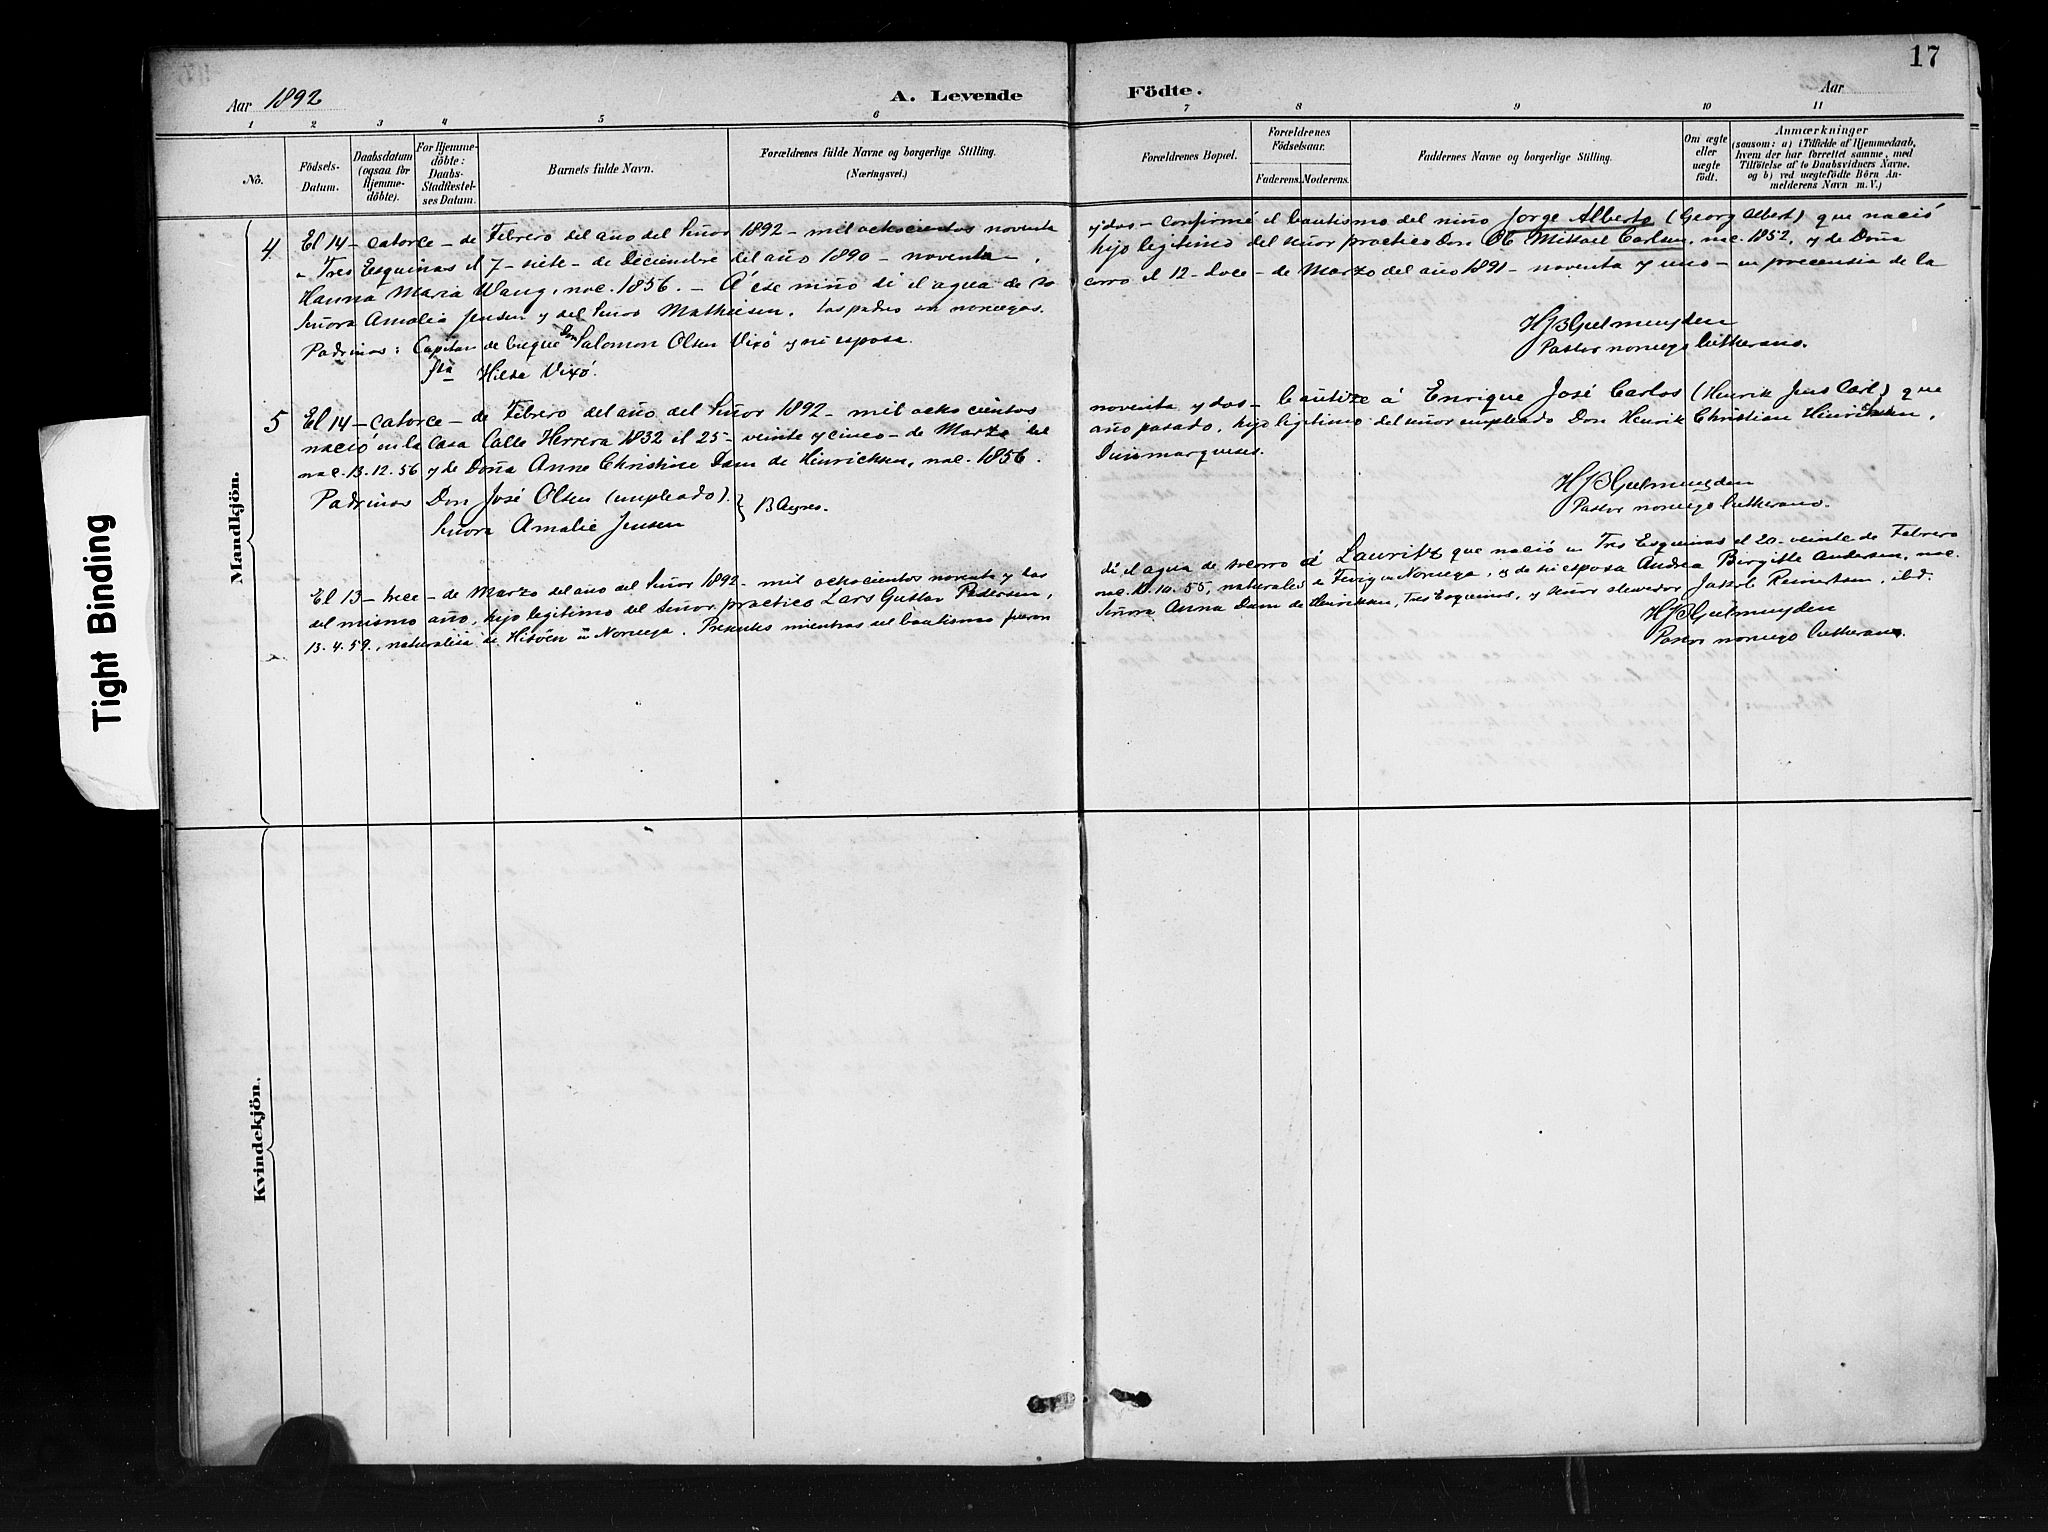 17
Aar 1892
A. Levende Födte.
Aar
1 2 3 4 5 6 7 8 9 10 11
No.
Födsels-Datum.
Daabsdatum (ogsaa for Hjemme-döbte).
For Hjemme-döbte: Daabs-Stadfæstel-ses Datum.
Barnets fulde Navn.
Forældrenes fulde Navne og borgerlige Stilling.
(Næringsvei.)
Forældrenes Bopæl.
Forældrenes Födselsaar.
Faderens. Moderens.
Faddernes Navne og borgerlige Stilling.
Om ægte eller uægte födt.
Anmærkninger
(saasom: a) i Tilfælde af Hjemmedaab, hvem der har forrettet samme, med Tilföielse af to Daabsvidners Navne. og b) ved uægtefödte Börn An-melderens Navn m. V.)
Mandkjön.
4 El 14 - catorce - de Febrero del año del Señor 1892 - mil ochocientos noventa y dos - confirmé el bautismo del niño Jorge Alberto (Georg Albert) que nació
en Tres Esquinas el 7 - siete - de Diciembre del año 1890 - noventa, hijo legitimo del señor practico Don Ole Mikael Carlsen, nac. 1852, y de Doña
Hanna Maria Wang, nac. 1856. - Á ese niño dí el agua de so corro el 12 - doce - de Marzo del año 1891 - noventa y uno - en precensia de la
Señora Amalia Jensen y del Señor Mathiesen. Los padres son noruegos.
Padrinos: Capitan de buque Salomon Olsen Vixó y su esposa.
Sta Hilda Vixó.
HJBGulmeyden
Pastor noruego lutherano.
5 El 14 - catorce - de Febrero del año del Señor 1892 - mil ochocientos noventa y dos - bautizé á Enrique José Carlos (Henrik Jens Carl) que
nació en la casa Calle Herrera 1832 el 25 - veinte y cinco - de Marzo del año pasado, hijo legitimo del señor empleado Don Henrik Christian Hinrichsen,
nac. 13.12.56 y de Doña Anne Christine Dam de Hinrichsen, nac. 1856. Dinmarqueses.
Padrinos Don José Olsen (empleado) } B Ayres.
Señora Amalie Jensen
HJBGulmeyden
Pastor noruego lutherano.
El 13 - trece - de Marzo del año del Señor 1892 - mil ochocientos noventa y dos dí el agua de socorro á Lauritz que nació en Tres Esquinas el 20 - veinte de Febrero
del mismo año, hijo legitimo del Señor practico Lars Gustav Pedersen, nac. 10.55, naturales de en Noruega, y de su esposa Andrea Birgitte Andersen, nac.
13.4.59, naturales de Hitöen en Noruega. Presentes mientras del bautismo fueron Señora Anna Dam de Henriksen, Tres Esquinas, y señor stevedor Jakob Reinertsen, ibd.
HJBGulmeyden
Pastor noruego lutherano.
Kvindekjön.
Tight Binding